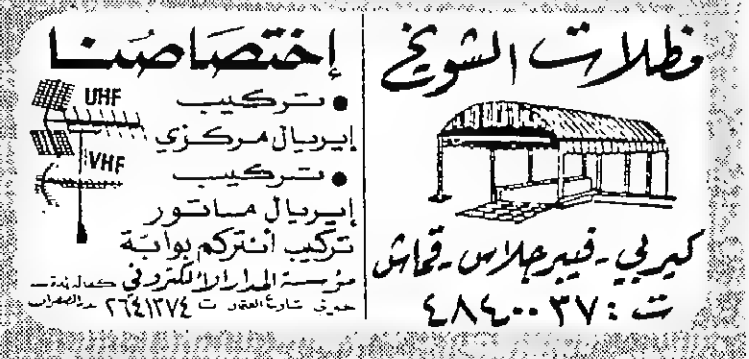 مظلات الشويخ
كيربي - فيبرجلاس - قماش
ت : ٤٨٤٠٠٣٧
إختصاصنا
• تركيب
إيريال مركزي
• تركيب
إيريال مساتور
تركيب أنتركم بوابة
مؤسسة المدار الالكتروني
حولي شارع ت ٢٦٤١٣٧٤
UHF
VHF